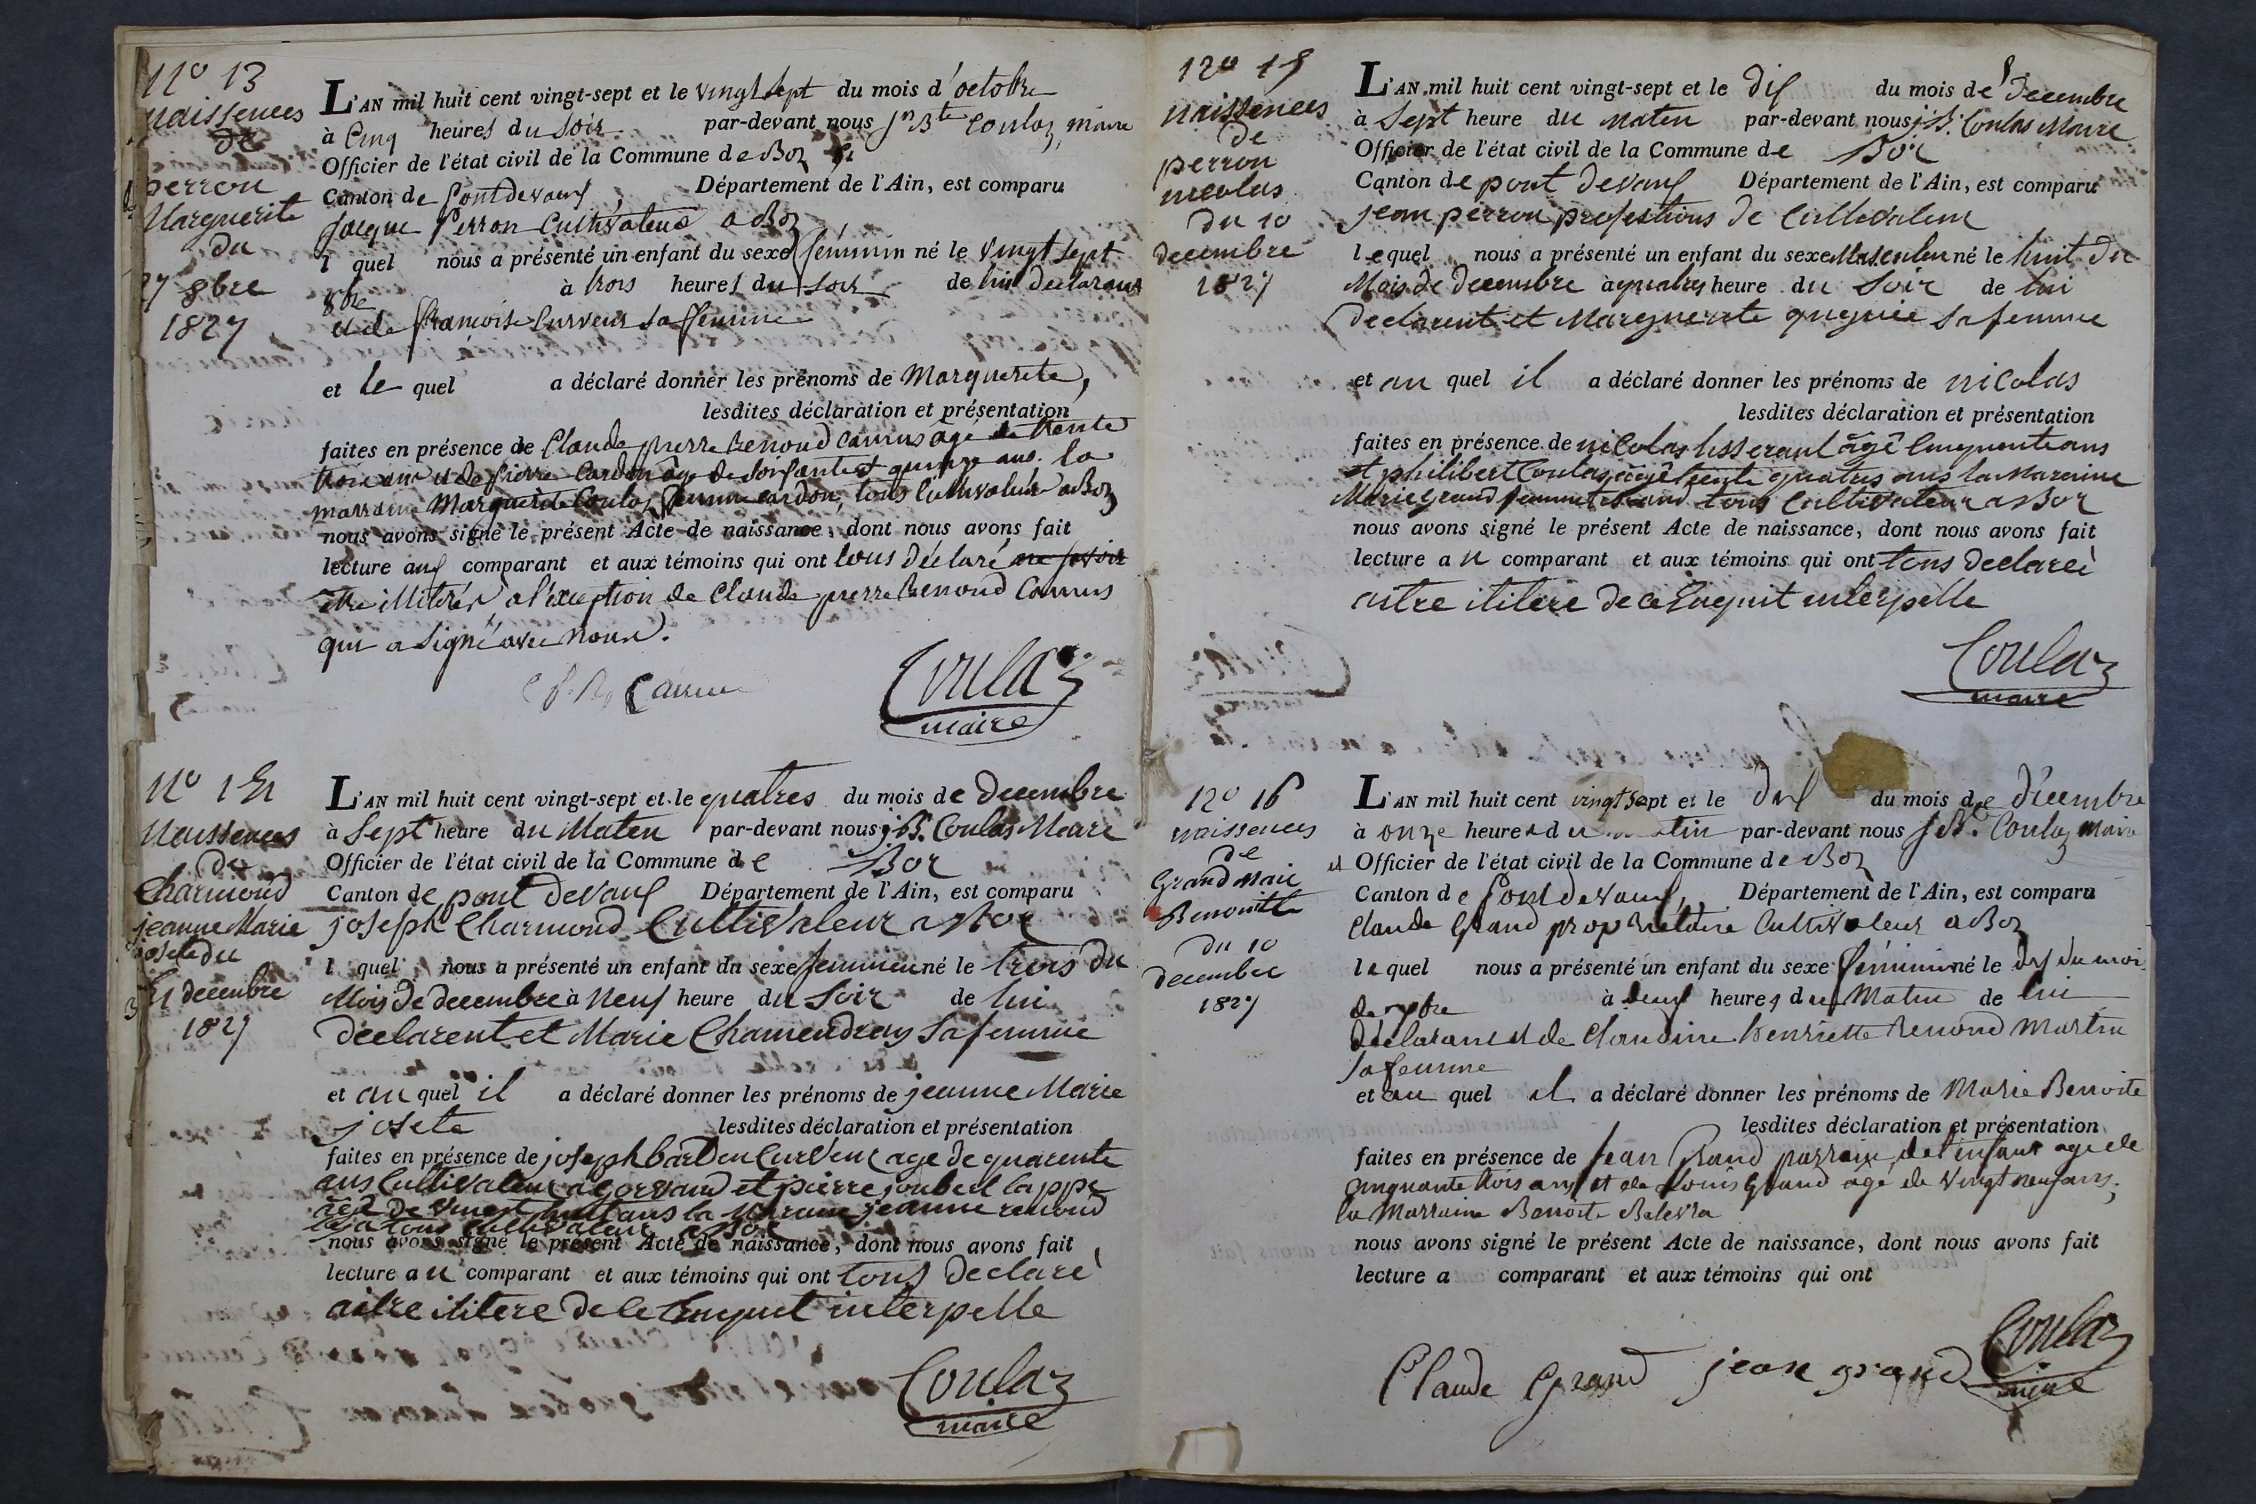 N° 13
Naissences
de
perron
Marguerite
du
27 8bre
1827
L'AN mil huit cent vingt-sept et le vingt sept du mois d'octobre
à Cinq heures du soir par-devant nous Jn Bte Coulaz, maire
Officier de l'état civil de la Commune de Boz
Canton de Pontdevaux, Département de l'Ain, est comparu
Jacque Perron Cultivateur a Boz
l quel nous a présenté un enfant du sexe féminin né le vingt sept
8bre à trois heures du soir de lui déclarant
et de françoise Curveur sa femme
et le quel a déclaré donner les prénoms de Marguerite,
lesdites déclaration et présentation
faites en présence de Claude pierre Renoud camus âgé de trente
trois ans et de pierre Cardon âgé de soixante et quinze ans. la
marraine Marguerite Coulaz femme cardon, tous Cultivateurs a Boz
nous avons signé le présent Acte de naissance, dont nous avons fait
lecture aux comparant et aux témoins qui ont tous déclaré ne savoir
être illitérés a l'exception de Claude pierre Renoud Camus
qui a signé avec nous.
C P R Camus
Coulaz
maire
N° 14
Naissences
de
Charmond
jeanne Marie
josete du
4 decembre
1827
L'AN mil huit cent vingt-sept et le quatres du mois de decembre
à Sept heure du Maten par-devant nous j B. Coulas Meare
Officier de l'état civil de la Commune de Bor
Canton de pont devaux Département de l'Ain, est comparu
joseph Charmond Cultivateur a Bor
l quel nous a présenté un enfant du sexe femmien né le trois du
Mois de decembre à neuf heure du Soir de lui
declarent et Marie Chamendray Sa femme
et au quel il a déclaré donner les prénoms de jeanne Marie
josete lesdites déclaration et présentation
faites en présence de joseph bardeu Curveur age de quarente
ans Cultivateur a Gorvaud et pierre joubert lappe
âgé de vingt huit ans la Maraine jeanne renoud
tous cultivateur a Bor
nous avons signé le présent Acte de naissance, dont nous avons fait
lecture au comparant et aux témoins qui ont tous declaré
aitre ilitere de ce Enquit interpelle
Coulaz
maire
N° 15
Naissences
de
perron
nicolas
du 10
decembre
1827
L'AN mil huit cent vingt-sept et le dix du mois de decembre
à Sept heure du maten par-devant nous j.B. Coulas Maire
Officier de l'état civil de la Commune de Bor
Canton de pont devaux Département de l'Ain, est comparu
jean perron profestions de Cultivateur
lequel nous a présenté un enfant du sexe Masculen né le huit du
Mois de decembre à quatres heure du Soir de lui
declarent et Marguerite guguée sa femme
et au quel il a déclaré donner les prénoms de nicolas
lesdites déclaration et présentation
faites en présence de nicolas tisserant âgé Cinquente ans
et philibert Coulas âgé trente quatres ans la Maraine
Marie grand femme tous Cultivateur a Bor
nous avons signé le présent Acte de naissance, dont nous avons fait
lecture au comparant et aux témoins qui ont tous declareé
aitre ilitere de ce Enquit enterpelle
Coulaz
maire
N° 16
naissences
de
Grand Marie
Benoitte
du 10
decembre
1827
L'AN mil huit cent vingt sept et le dix du mois de décembre
à onze heures du matin par-devant nous J.B. Coulaz Maire
et Officier de l'état civil de la Commune de Boz
Canton de Pontdevaux, Département de l'Ain, est comparu
Claude Grand propriétaire Cultivateur a Boz
lequel nous a présenté un enfant du sexe féminin né le dix du mois
de xbre à deux heures du Matin de lui
déclarant et de Claudine henriette Renoud Martin
sa femme
et au quel il a déclaré donner les prénoms de Marie Benoite
lesdites déclaration et présentation
faites en présence de Jean Grand parrain de l'enfant age de
cinquante trois ans et de Louis Grand âgé de vingt neuf ans,
la Marraine Benoite Balevra
nous avons signé le présent Acte de naissance, dont nous avons fait
lecture a comparant et aux témoins qui ont
Claude Grand jean grand Coulaz
maire